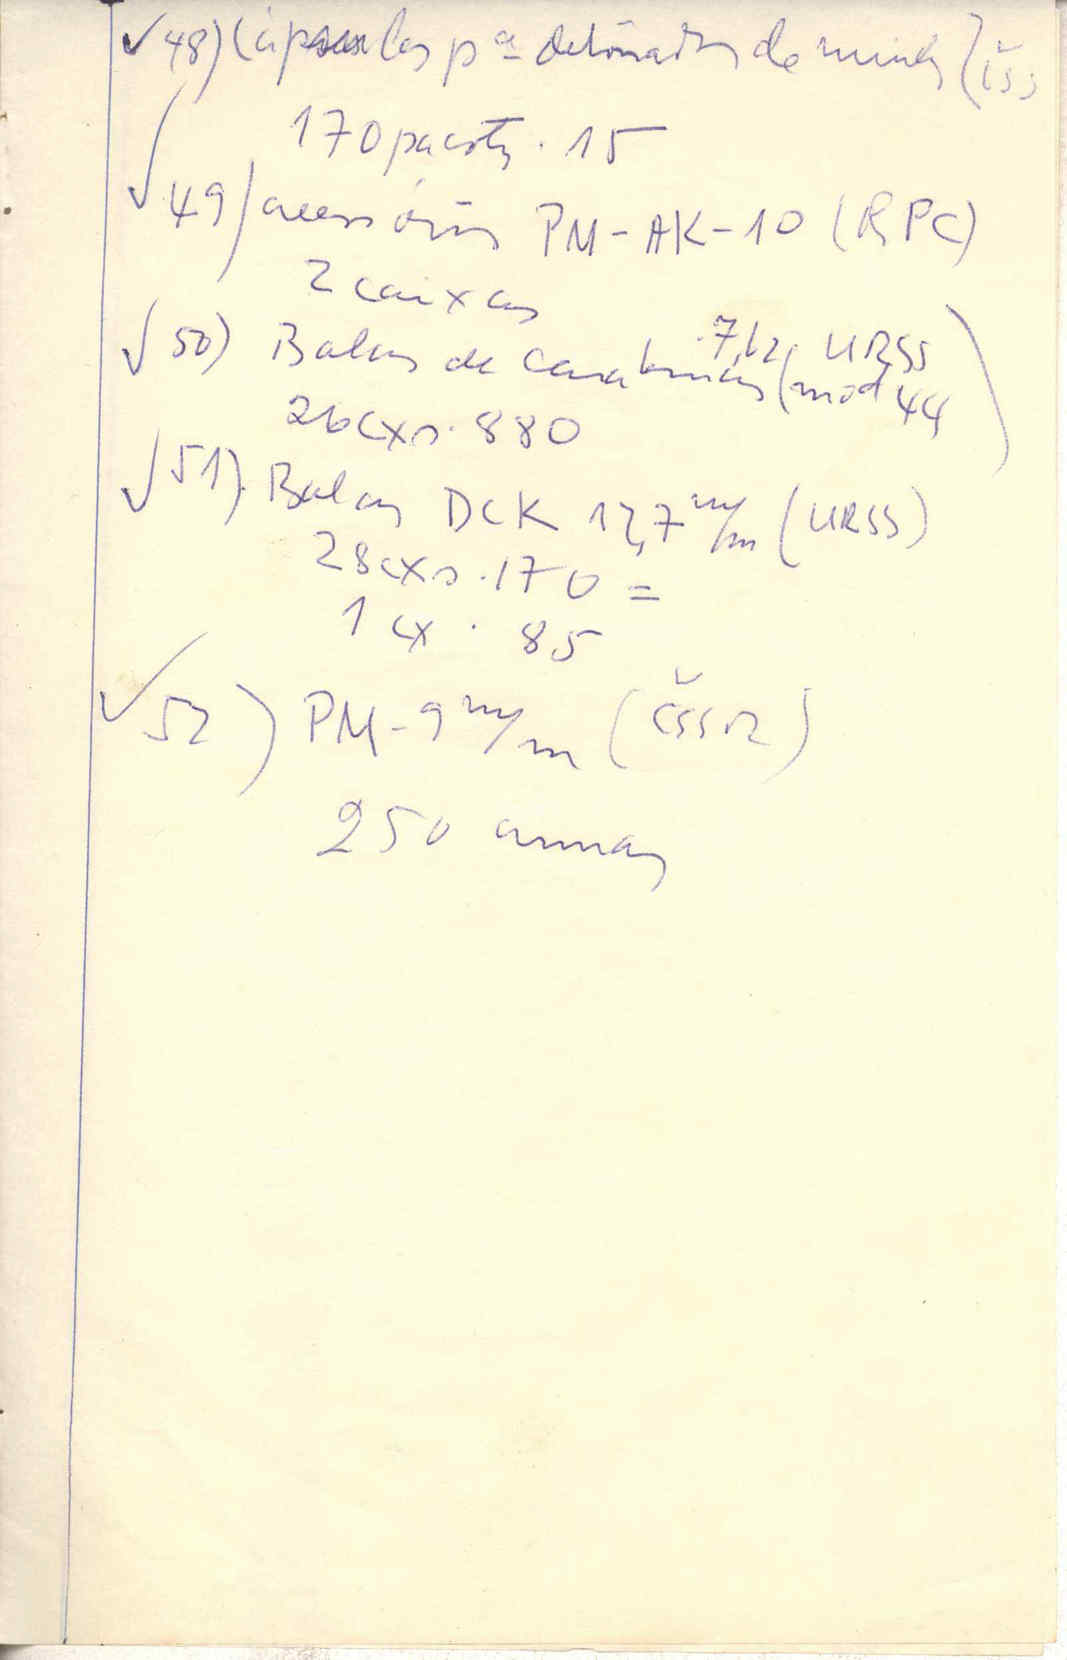 ✓ 48) Cápsulas pª detonador de minas (čss
170 pacots. 15
✓ 49) acessórios PM-AK-10 (RPC)
2 caixas
✓ 50) Balas de carabinas 7,62 (URSS mod 44)
26 cxs. 880
✓ 51) Balas DCK 12,7 m/m (URSS)
28 cxs. 170 =
1 cx. 85
✓ 52) PM-9 m/m (čssR)
250 armas